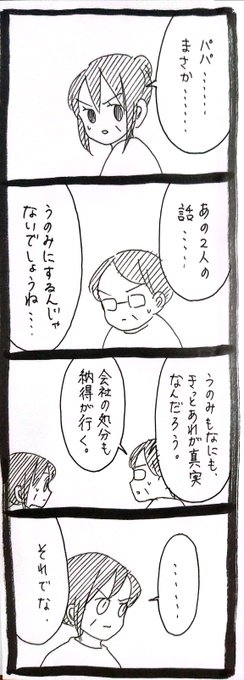 パパ……
まさか……
あの2人の
話……
うのみにするんじゃ
ないでしょうね……
うのみもなにも、
きっとあれが真実
なんだろう。
会社の処分も
納得が行く。
……
それでな、